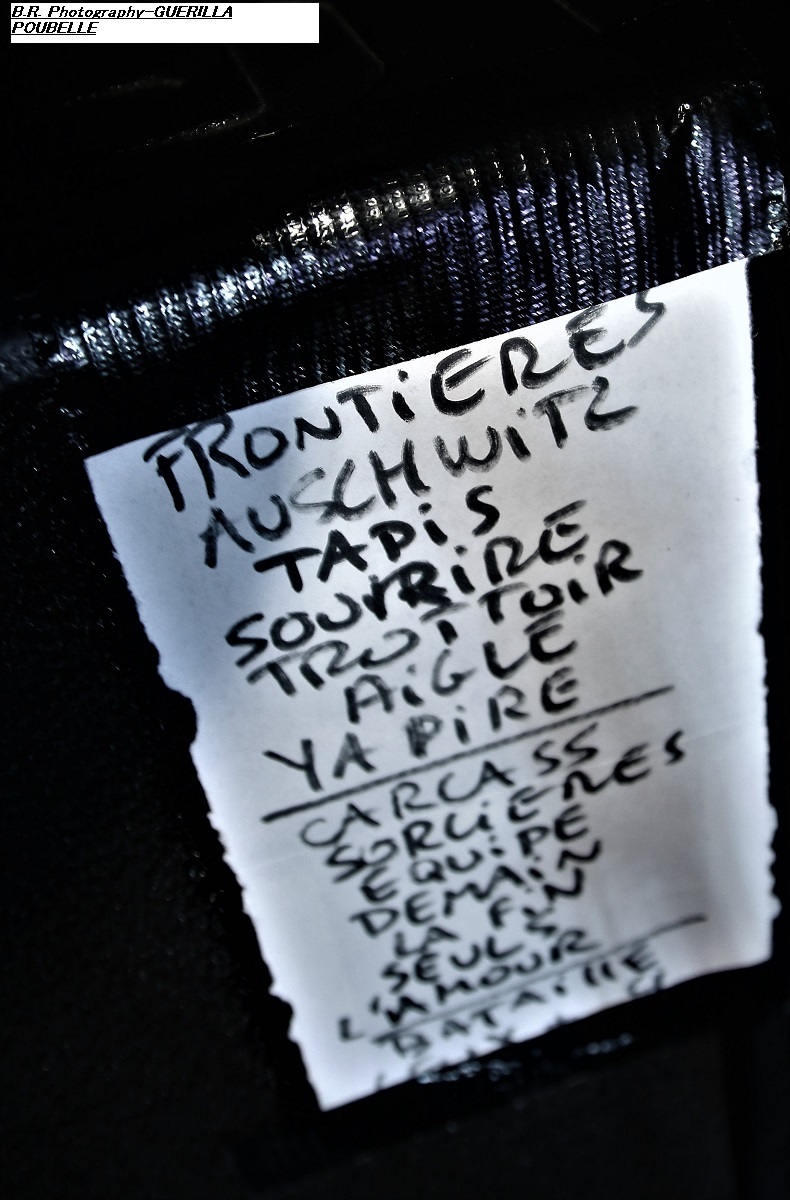 B.R. Photography-GUERILLA
POUBELLE
FRONTiERES
AUSCHWiTZ
TAPiS
SOURiRE
TROTTOiR
AiGLE
YA PiRE
CARCASS
SORCiERES
EQUiPE
DEMAiN
LA FiN
SEULS
L'AMOUR
BATAiLLE